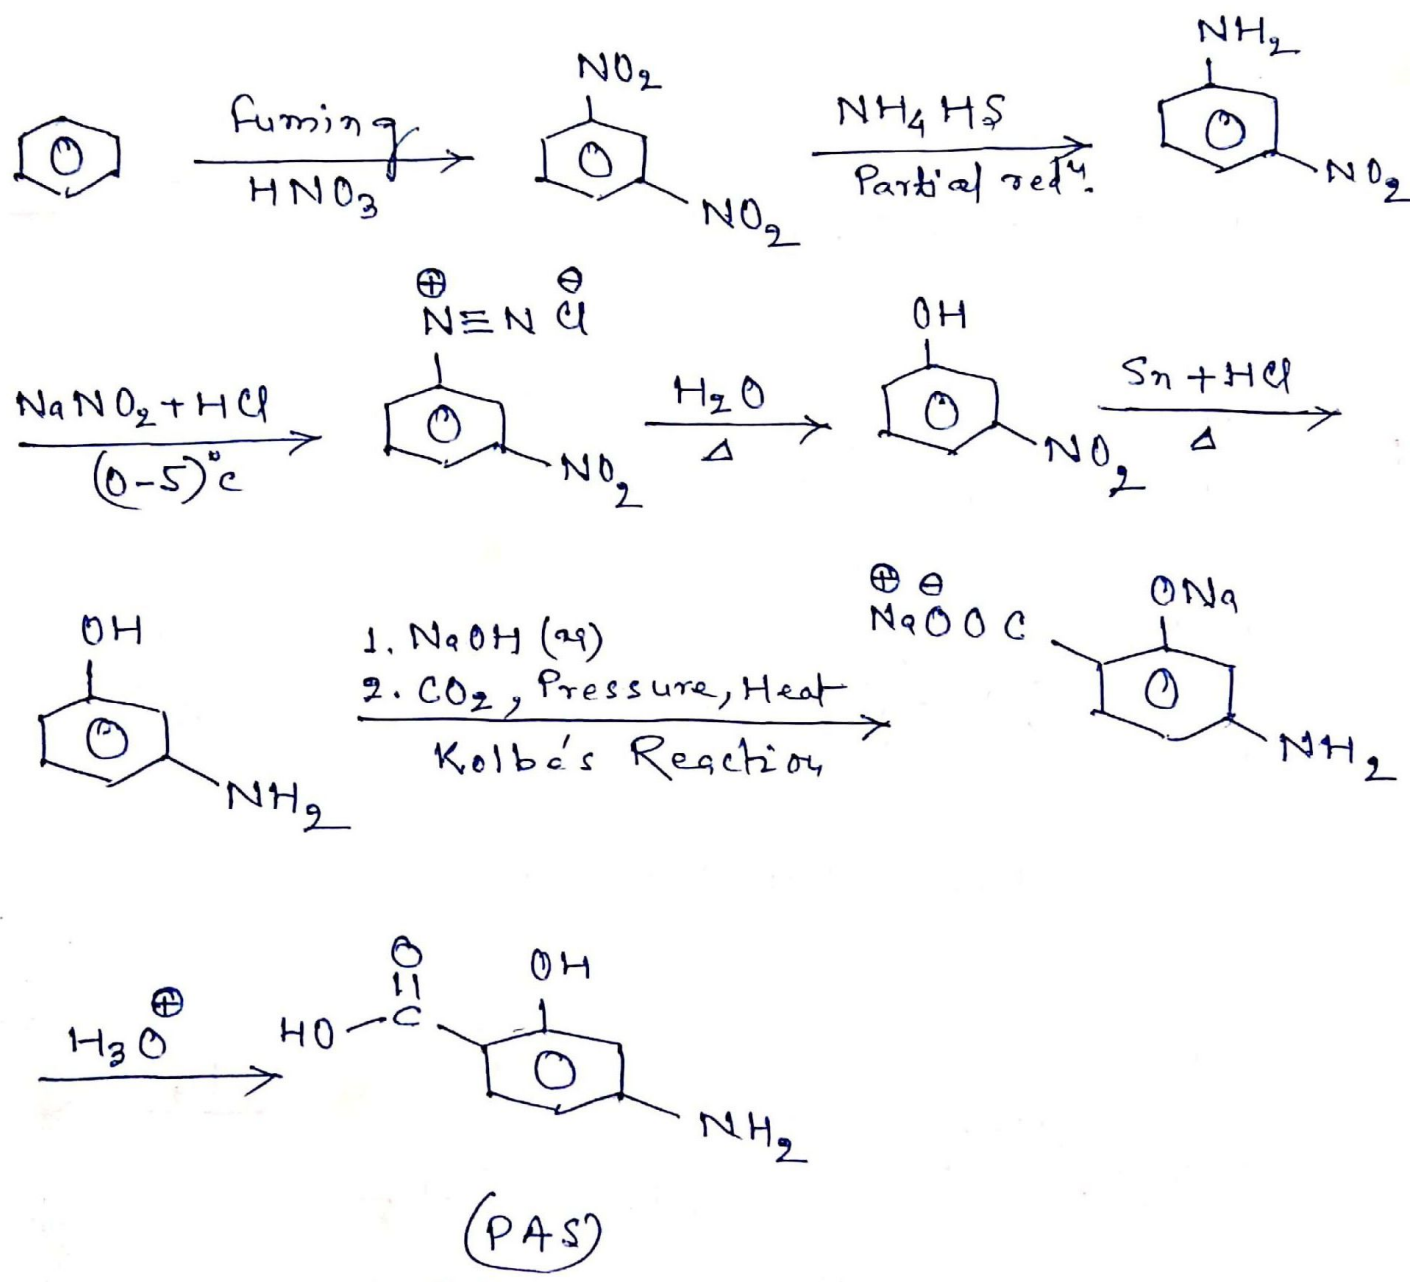 NO2
fuming
HNO3
NO2
NH4HS
Partial redn.
NH2
NO2
NaNO2+HCl
(0-5)°c
⊕ ⊖
N≡N Cl
NO2
H2O
Δ
OH
NO2
Sn+HCl
Δ
OH
NH2
1. NaOH (aq)
2. CO2, Pressure, Heat
Kolbe's Reaction
⊕ ⊖
NaOOC
ONa
NH2
H3O⊕
O
HO C
OH
NH2
(PAS)